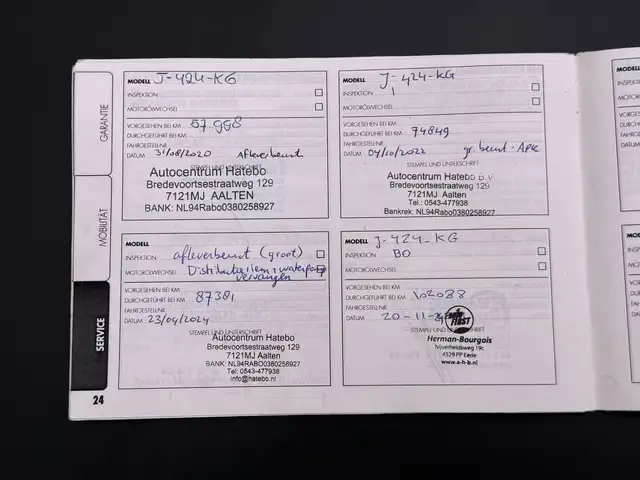 GARANTIE
MOBILITÄT
SERVICE
24
MODELL J-424-KG
INSPEKTION
MOTORÖLWECHSEL
VORGESEHEN BEI KM 57.998
DURCHGEFÜHRT BEI KM
FAHRGESTELLNR.
DATUM 31/08/2020 Afleverbeurt
STEMPEL UND UNTERSCHRIFT
Autocentrum Hatebo
Bredevoortsestraatweg 129
7121MJ AALTEN
BANK: NL94Rabo0380258927
MODELL J-424-KG
INSPEKTION
MOTORÖLWECHSEL
VORGESEHEN BEI KM
DURCHGEFÜHRT BEI KM 74849
FAHRGESTELLNR.
DATUM 04/10/2022 gr beurt-APK
STEMPEL UND UNTERSCHRIFT
Autocentrum Hatebo B.V
Bredevoortsestraatweg 129
7121MJ AALTEN
Tel.: 0543-477938
Bankrek: NL94Rabo0380258927
MODELL
INSPEKTION afleverbeurt (groot)
MOTORÖLWECHSEL Distributieriem + waterpomp
vervangen
VORGESEHEN BEI KM
DURCHGEFÜHRT BEI KM 87381
FAHRGESTELLNR.
DATUM 23/04/2024
STEMPEL UND UNTERSCHRIFT
Autocentrum Hatebo
Bredevoortsestraatweg 129
7121MJ Aalten
BANK: NL94RABO0380258927
Tel: 0543-477938
info@hatebo.nl
MODELL J-424-KG
INSPEKTION BO
MOTORÖLWECHSEL
VORGESEHEN BEI KM
DURCHGEFÜHRT BEI KM 102038
FAHRGESTELLNR.
DATUM 20-11-
STEMPEL UND UNTERSCHRIFT
FIRST
Herman-Bourgois
Nijverheidsweg 19c
4529 PP Eede
www.a-h-b.nl